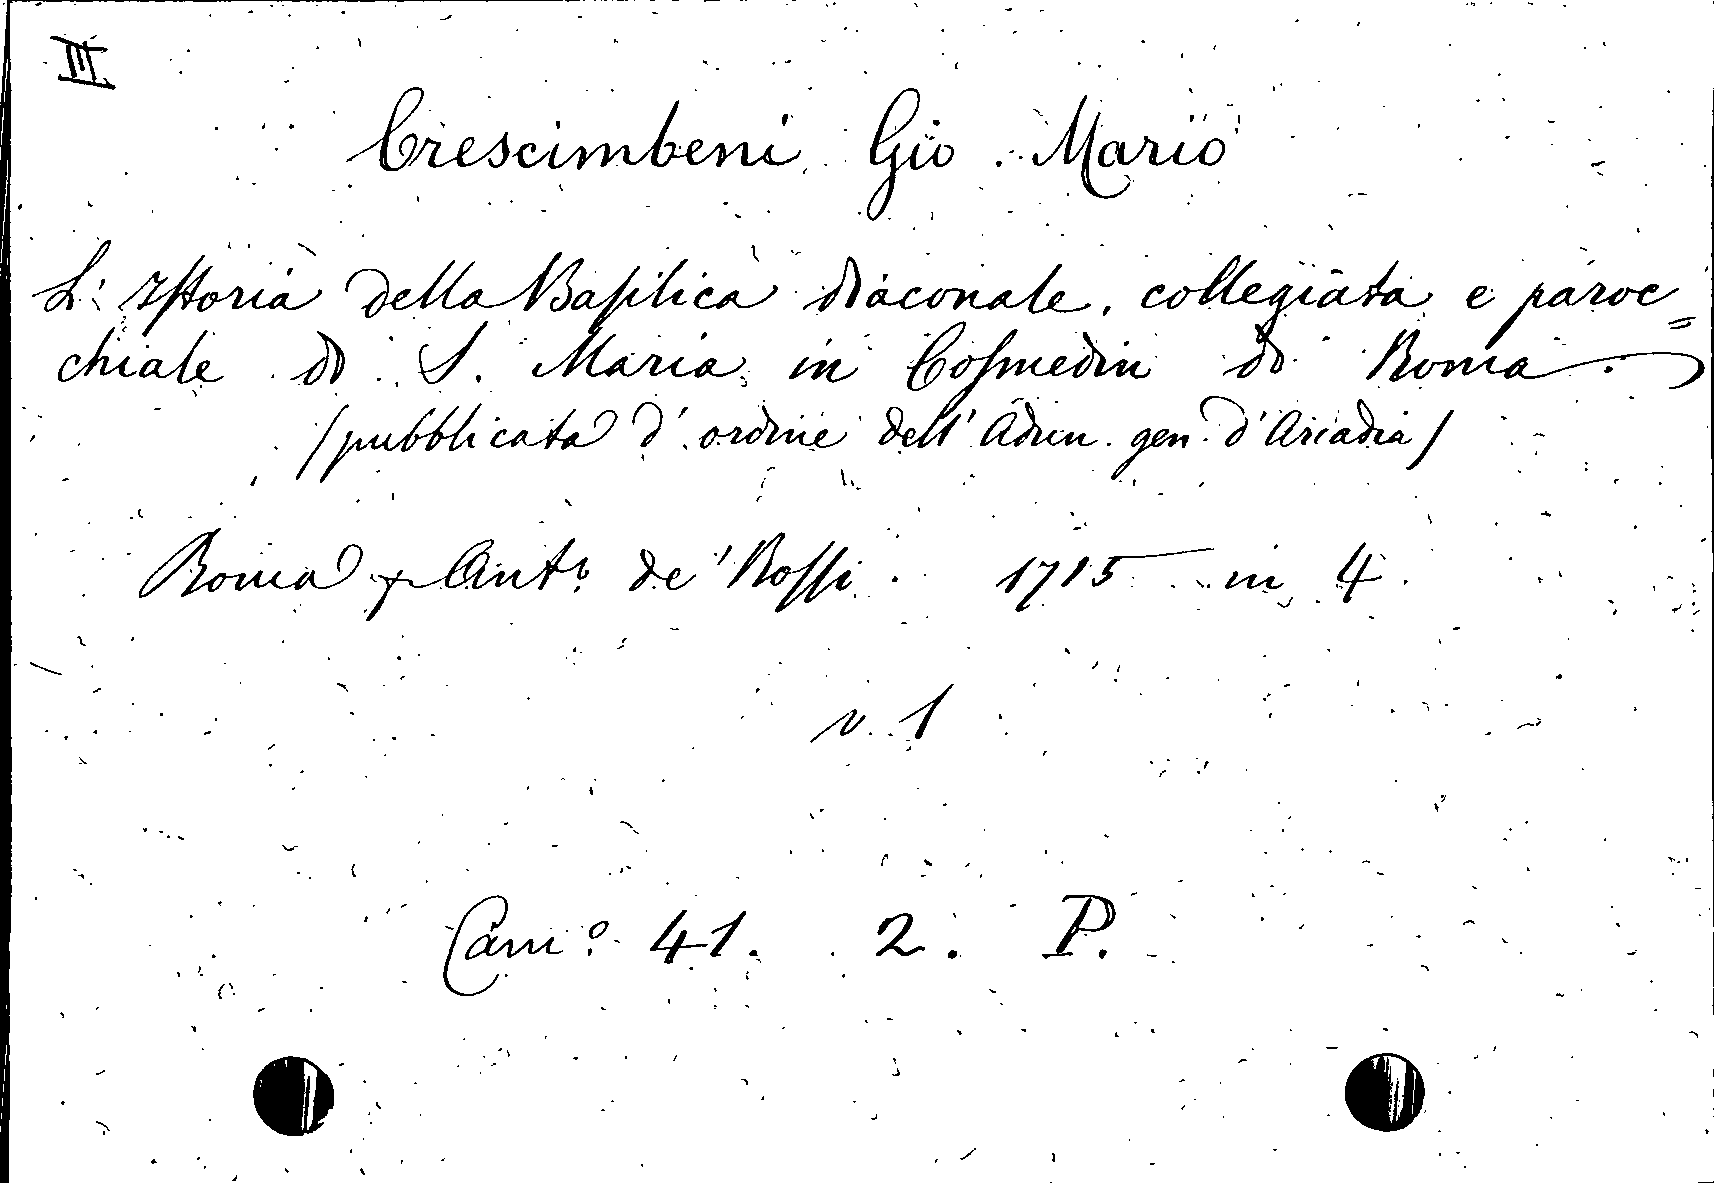 III
Crescimbeni Gio. Mario
L'Istoria della Basilica diaconale, collegiata e paroc=
chiale di S. Maria in Cosmedin di Roma.
(pubblicata d'ordine dell'Adun. gen. d'Arcadia)
Roma p Anto de' Rossi. 1715 in 4.
v. 1
Camo 41. 2. P.